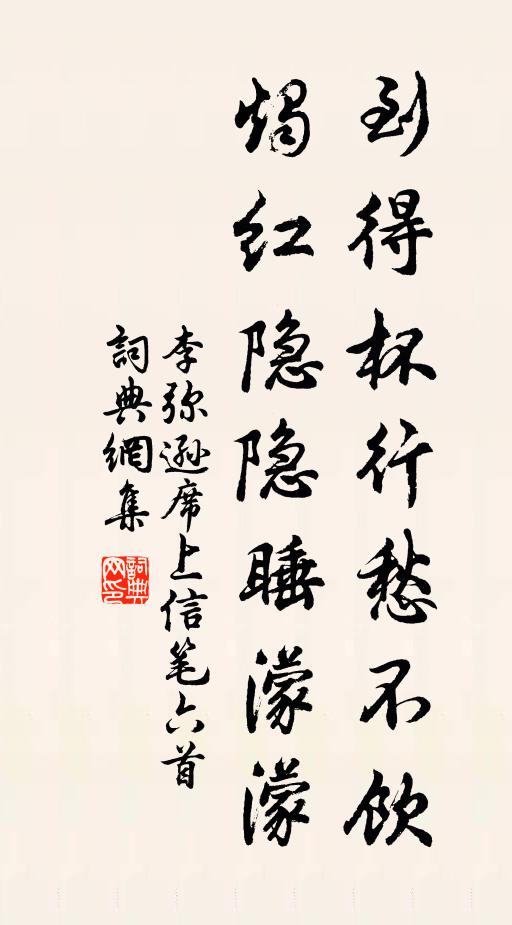 到得杯行愁不飲
燭红隐隐睡濛濛
李弥遜席上信笔六首
詞典網集
詞典网印